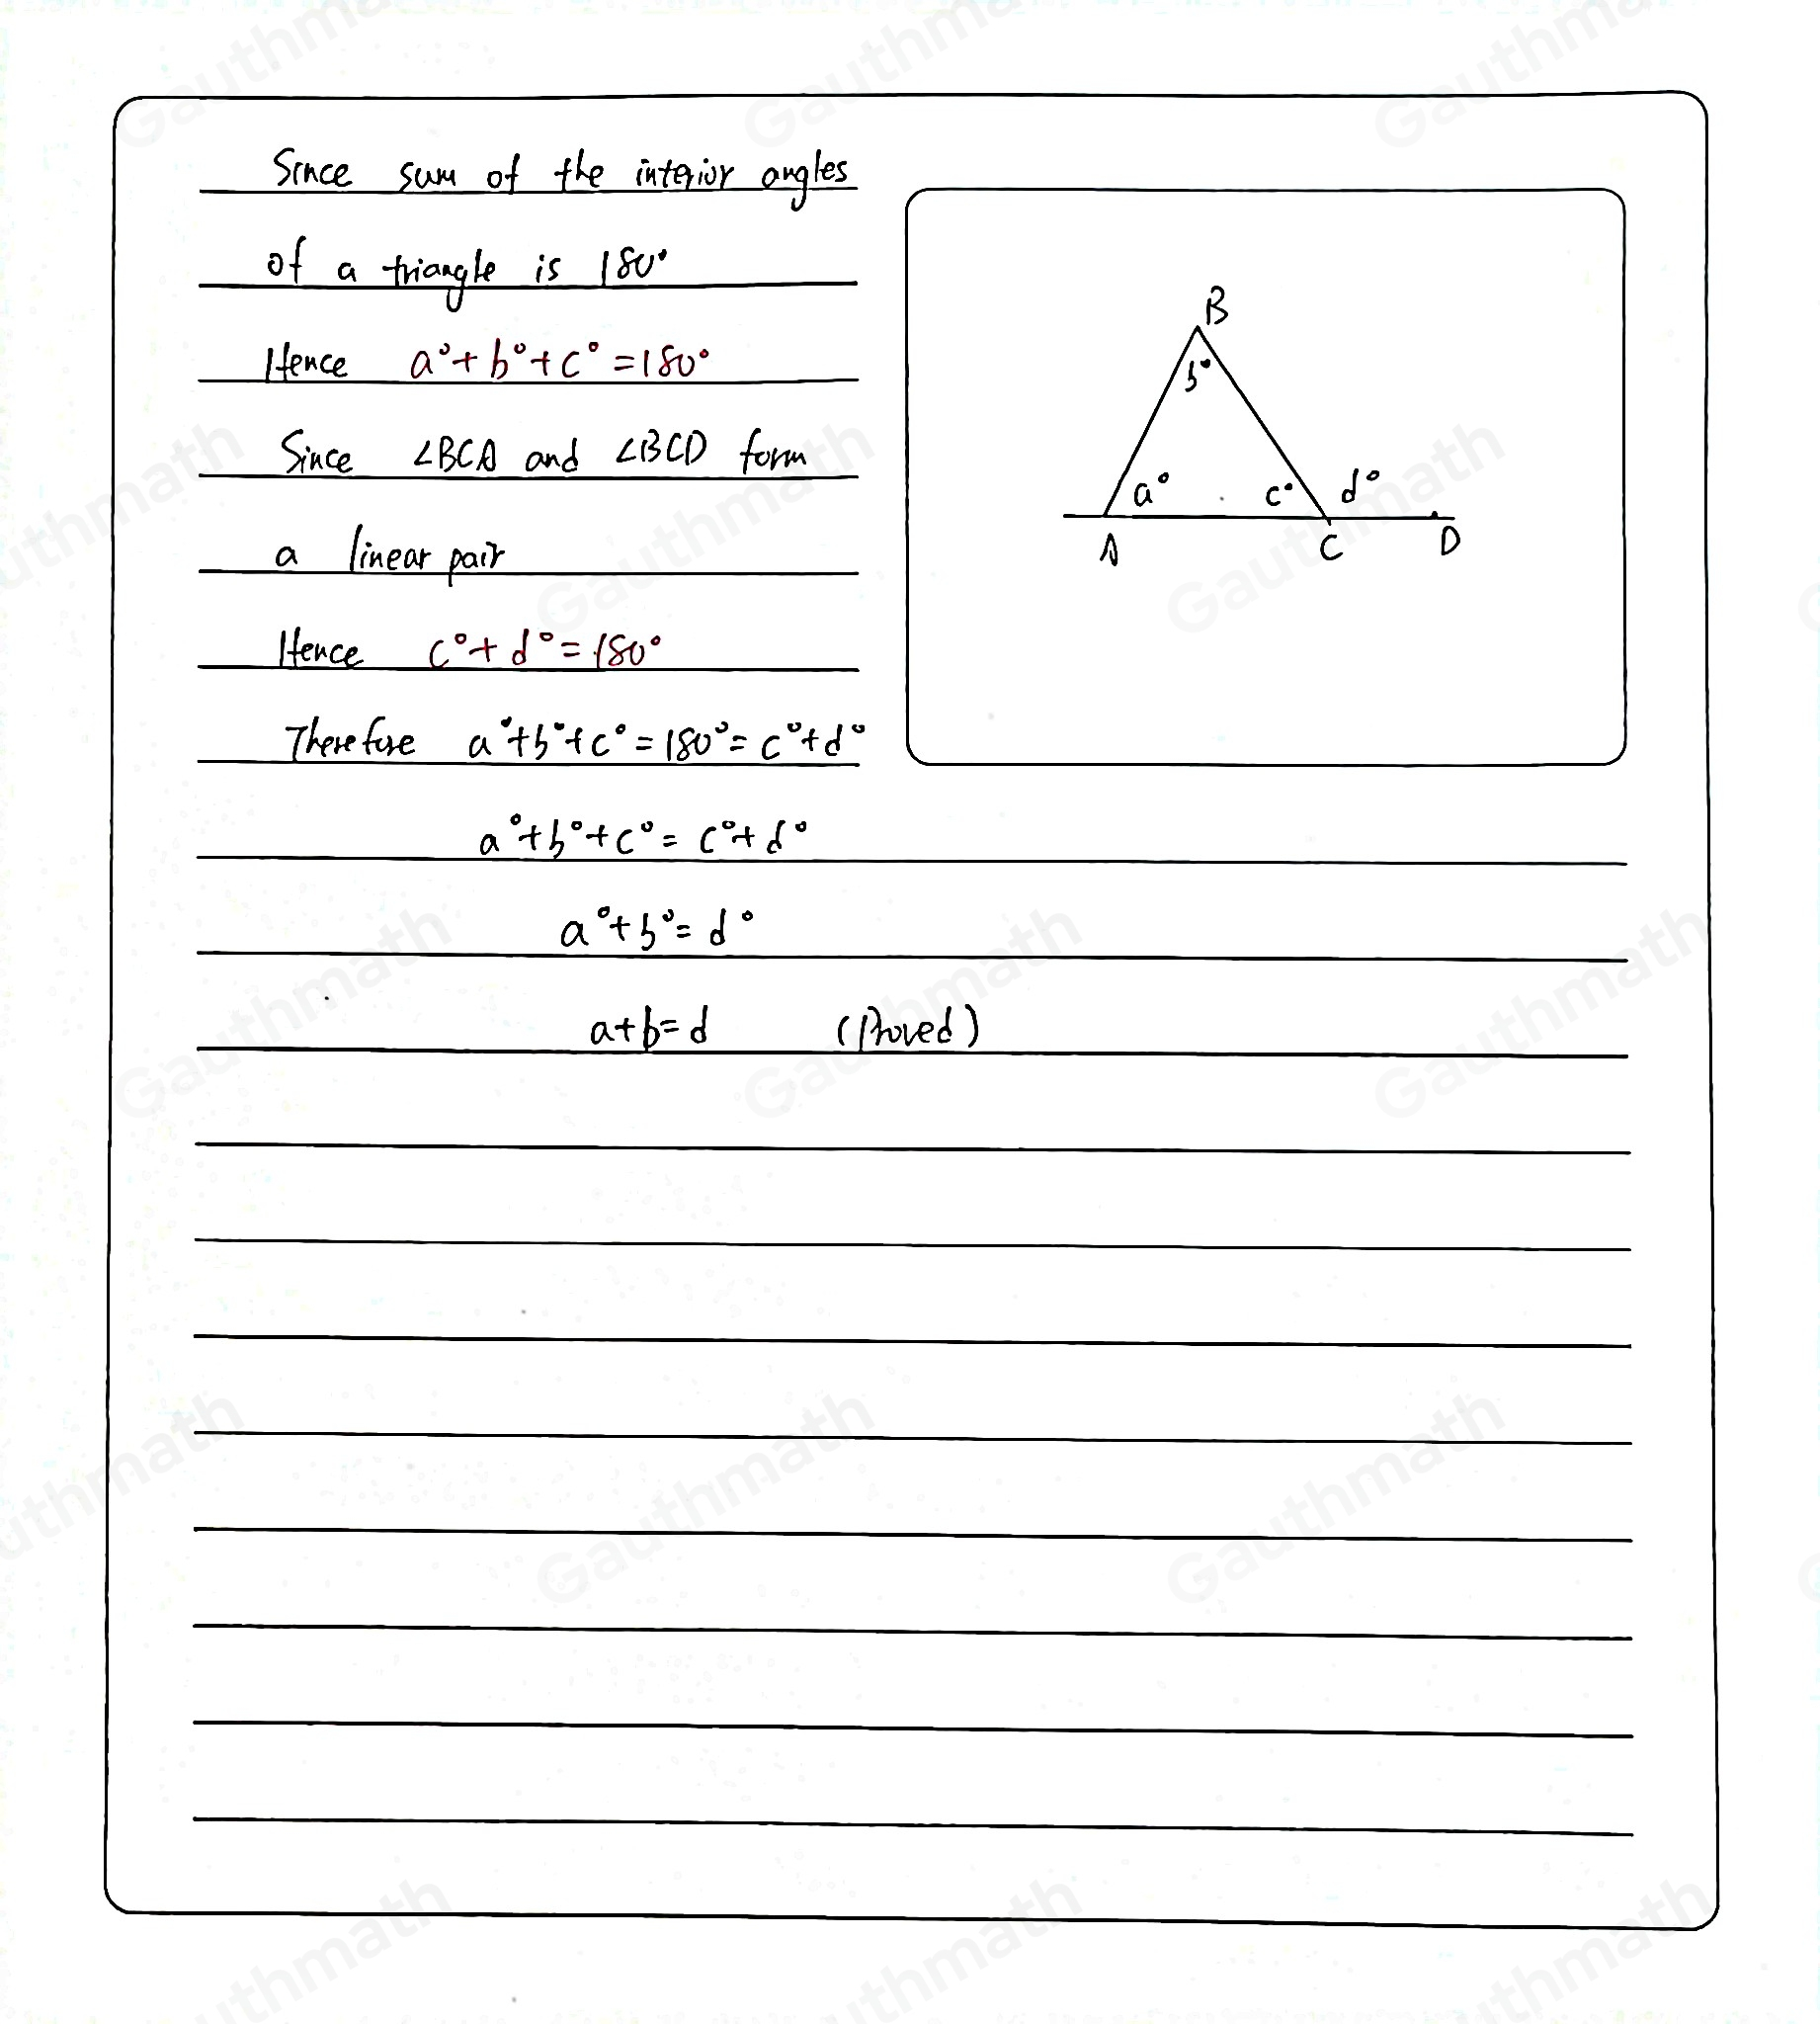 Since sum of the interior angles
of a triangle is 180°
Hence a°+b°+c°=180°
Since ∠BCA and ∠BCD form
a linear pair
Hence c°+d°=180°
Therefore a°+b°+c°=180°=c°+d°
a°+b°+c°=c°+d°
a°+b°=d°
a+b=d (Proved)
B
b°
a° c° d°
A C D
Gauthmath